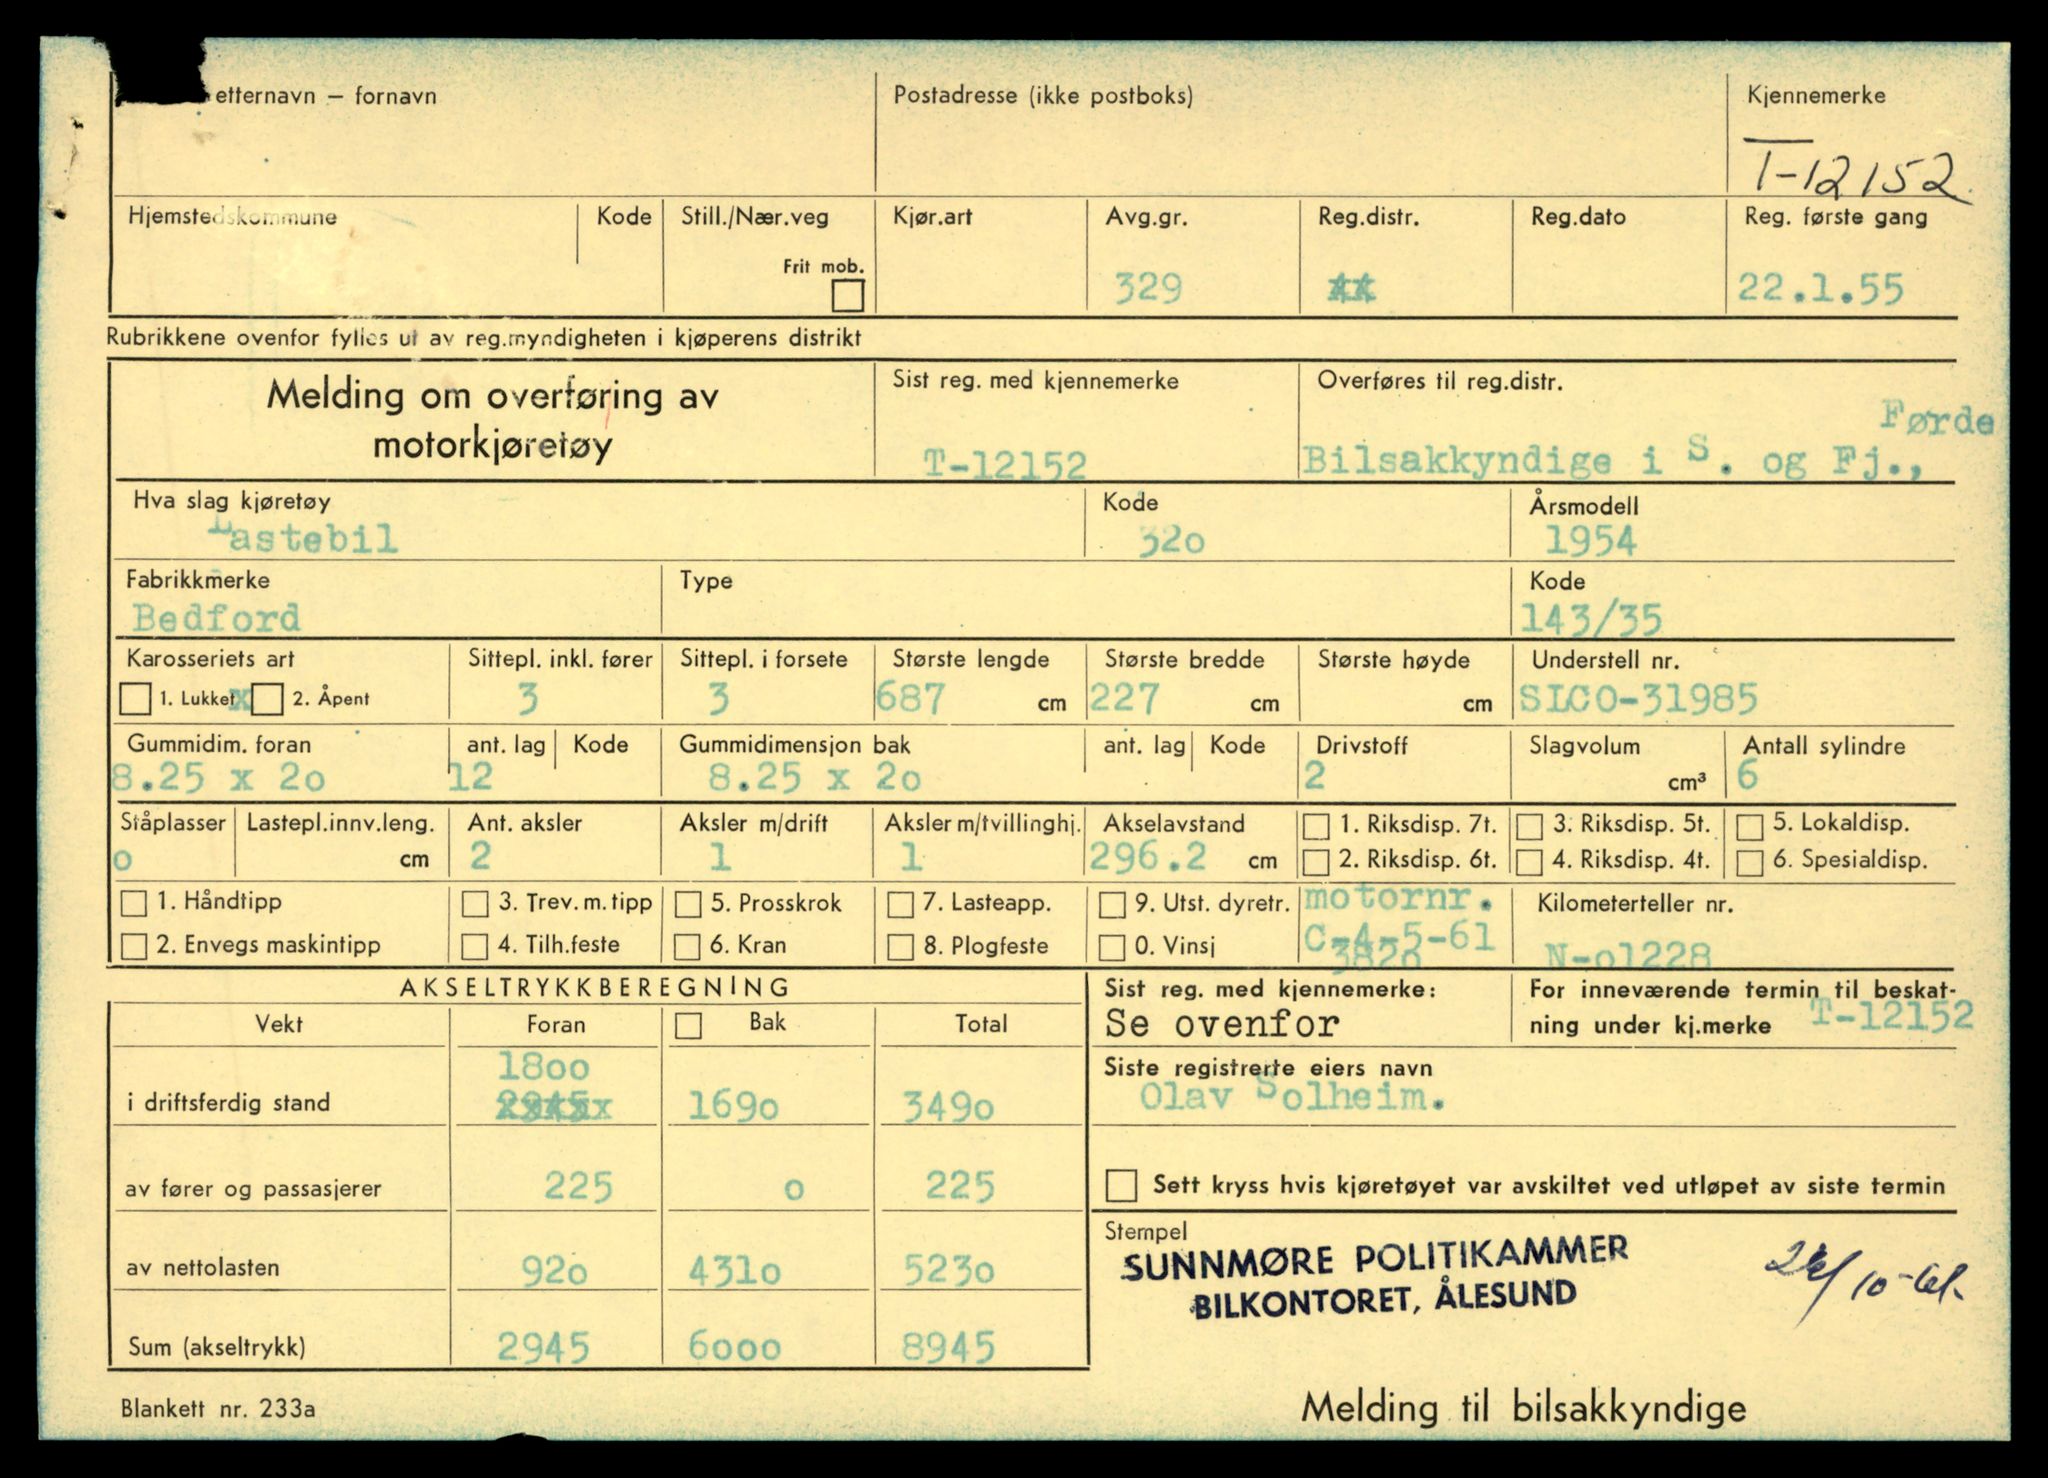 etternavn – fornavn Postadresse (ikke postboks) Kjennemerke
T-12152
Hjemstedskommune Kode Still./Nær.veg Kjør.art Avg.gr. Reg.distr. Reg.dato Reg. første gang
Frit mob. 329 22.1.55
Rubrikkene ovenfor fylles ut av reg.myndigheten i kjøperens distrikt
Melding om overføring av motorkjøretøy
Sist reg. med kjennemerke
T-12152
Overføres til reg.distr.
Bilsakkyndige i S. og Fj., Førde
Hva slag kjøretøy Kode Årsmodell
Lastebil 320 1954
Fabrikkmerke Type Kode
Bedford 143/35
Karosseriets art Sittepl. inkl. fører Sittepl. i forsete Største lengde Største bredde Største høyde Understell nr.
1. Lukket x 2. Åpent 3 3 687 cm 227 cm cm SLCO-31985
Gummidim. foran ant. lag Kode Gummidimensjon bak ant. lag Kode Drivstoff Slagvolum Antall sylindre
8.25 x 20 12 8.25 x 20 2 cm³ 6
Ståplasser Lastepl.innv.leng. Ant. aksler Aksler m/drift Aksler m/tvillinghj. Akselavstand 1. Riksdisp. 7t. 3. Riksdisp. 5t. 5. Lokaldisp.
0 cm 2 1 1 296.2 cm 2. Riksdisp. 6t. 4. Riksdisp. 4t. 6. Spesialdisp.
1. Håndtipp 3. Trev. m. tipp 5. Prosskrok 7. Lasteapp. 9. Utst. dyretr. motornr. Kilometerteller nr.
2. Envegs maskintipp 4. Tilh.feste 6. Kran 8. Plogfeste 0. Vinsj C-4-5-61
3820 N-01228
AKSELTRYKKBEREGNING
Vekt Foran Bak Total
1800
i driftsferdig stand 1690 3490
av fører og passasjerer 225 0 225
av nettolasten 920 4310 5230
Sum (akseltrykk) 2945 6000 8945
Sist reg. med kjennemerke:
Se ovenfor
For inneværende termin til beskat-
ning under kj.merke T-12152
Siste registrerte eiers navn
Olav Solheim.
Sett kryss hvis kjøretøyet var avskiltet ved utløpet av siste termin
Stempel
SUNNMØRE POLITIKAMMER
BILKONTORET, ÅLESUND
Blankett nr. 233a
Melding til bilsakkyndige